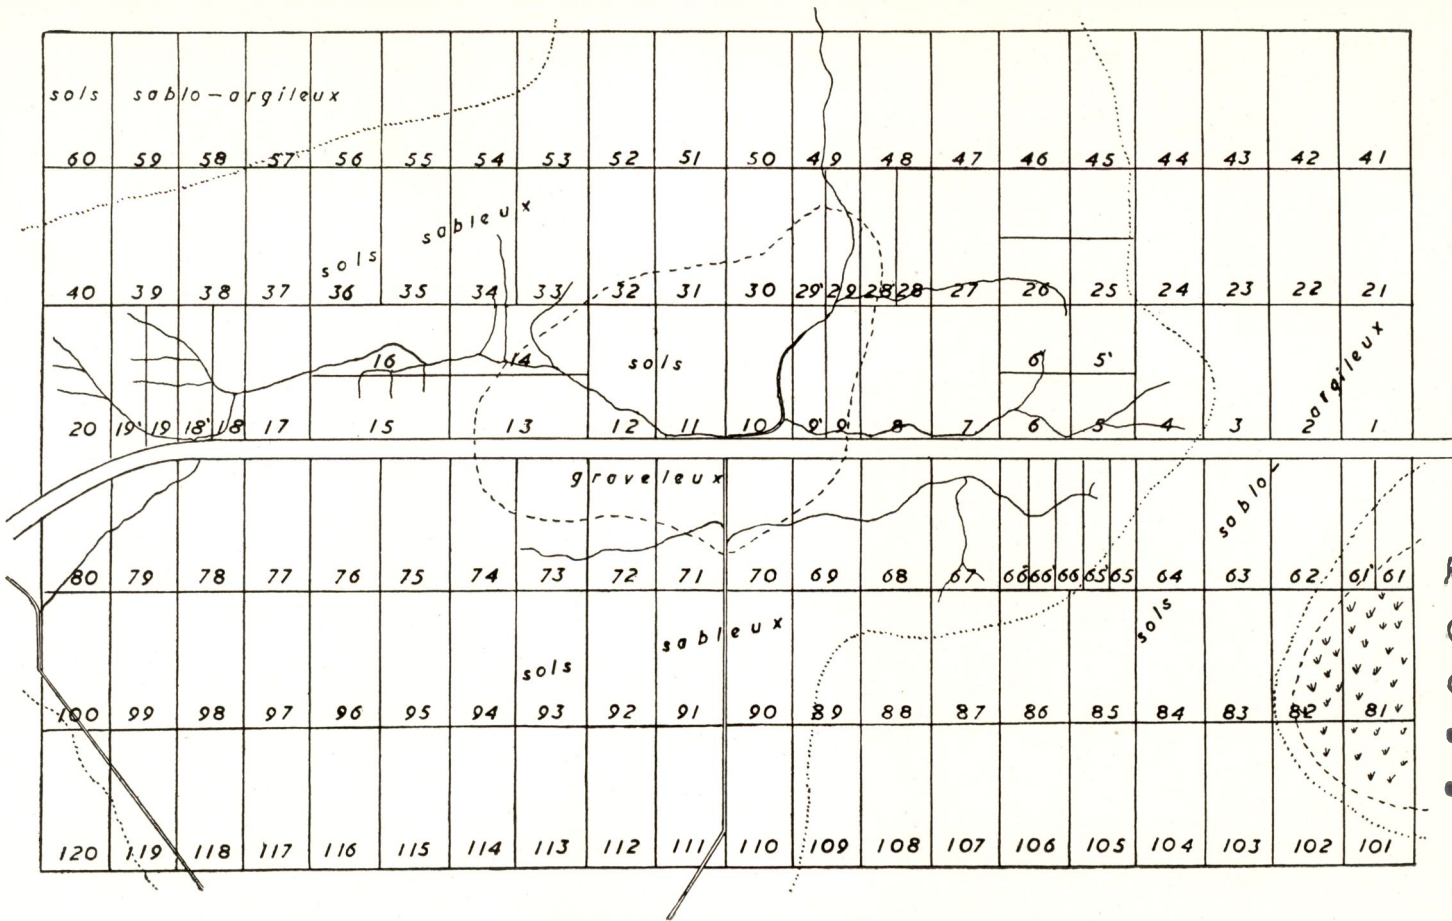 sols sablo-argileux
60 59 58 57 56 55 54 53 52 51 50 49 48 47 46 45 44 43 42 41
sols sableux
40 39 38 37 36 35 34 33 32 31 30 29' 29 28' 28 27 26 25 24 23 22 21
16 14 sols 6' 5'
argileux
20 19' 19 18' 18 17 15 13 12 11 10 9' 9 8 7 6 5 4 3 2 1
graveleux
sablo-
80 79 78 77 76 75 74 73 72 71 70 69 68 67 66" 66' 66 65' 65 64 63 62 61' 61
sols sableux
sols
100 99 98 97 96 95 94 93 92 91 90 89 88 87 86 85 84 83 82 81
120 119 118 117 116 115 114 113 112 111 110 109 108 107 106 105 104 103 102 101